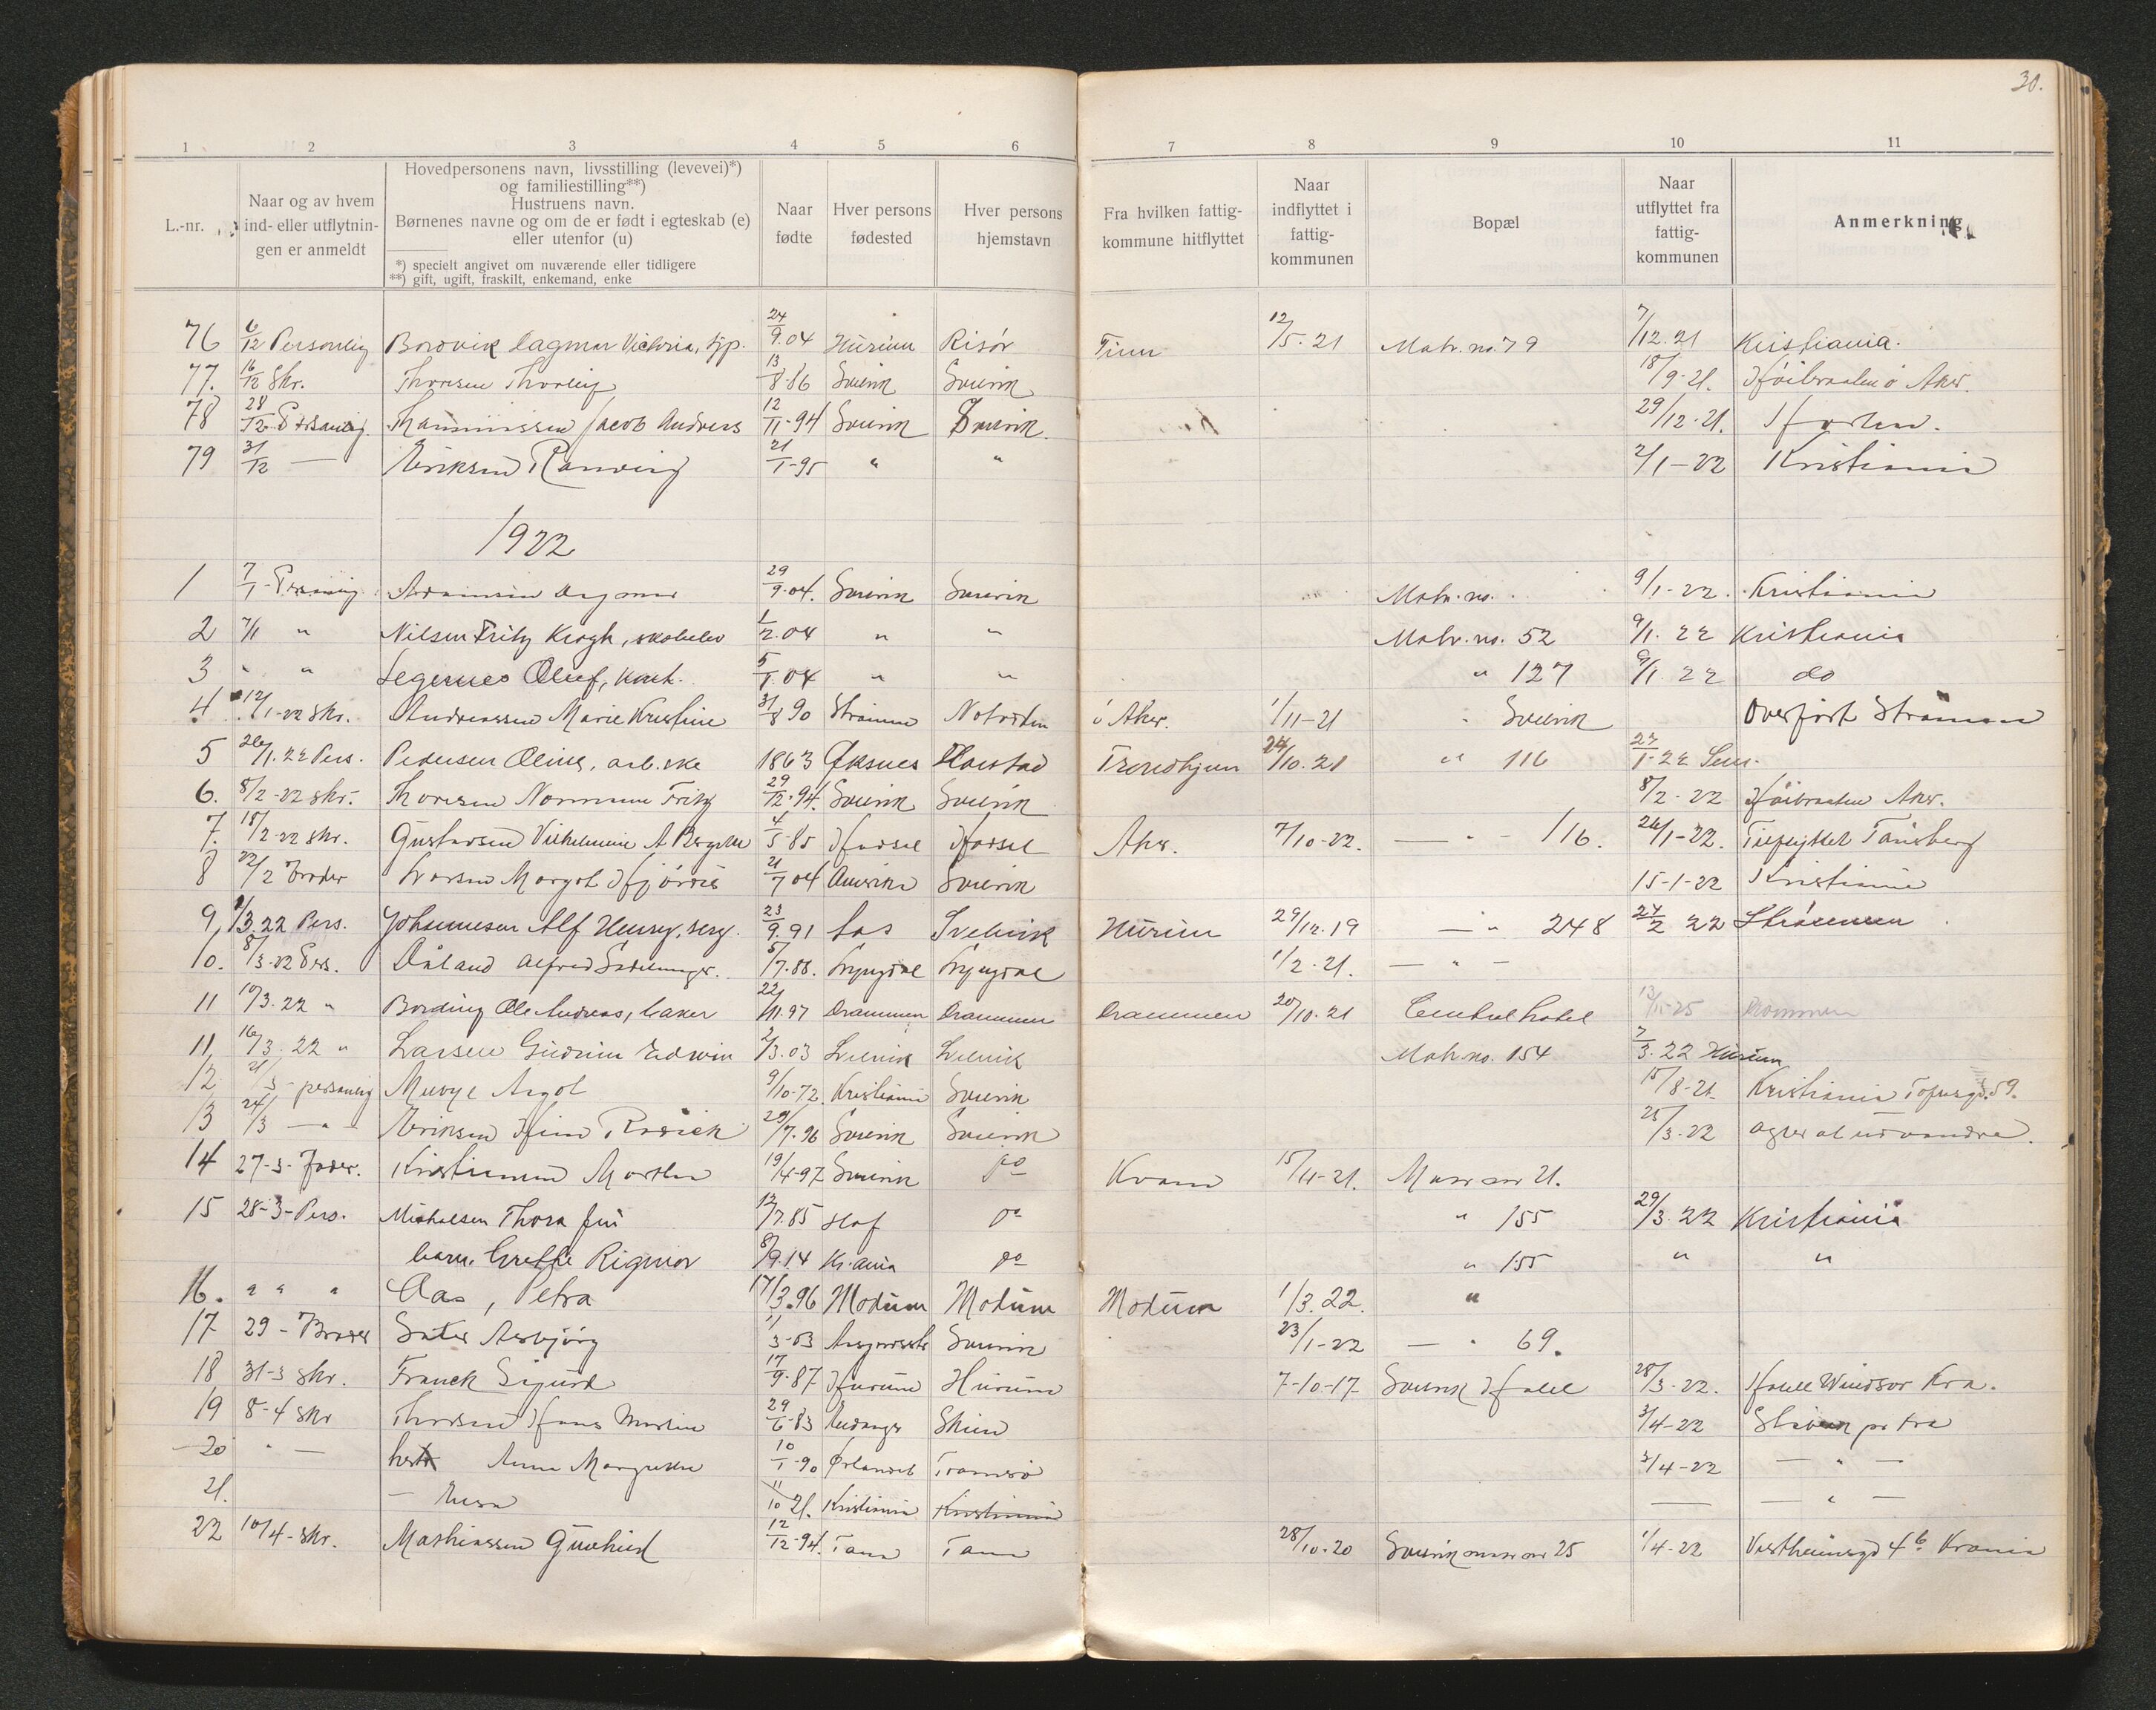 30.
1 2 3 4 5 6 7 8 9 10 11
L.-nr.
Naar og av hvem ind- eller utflytnin-gen er anmeldt
Hovedpersonens navn, livsstilling (levevei)*)
og familiestilling**)
Hustruens navn.
Børnenes navne og om de er født i egteskab (e)
eller utenfor (u)
*) specielt angivet om nuværende eller tidligere
**) gift, ugift, fraskilt, enkemand, enke
Naar fødte
Hver persons fødested
Hver persons hjemstavn
Fra hvilken fattig-kommune hitflyttet
Naar indflyttet i fattig-kommunen
Bopæl
Naar utflyttet fra fattig-kommunen
Anmerkning
76 6/12 Personlig Bordvik Dagmar Victoria, tjp. 24/9.04 Hurum Risör Tinn 12/5.21 Matr. no. 79 7/12.21 Kristiania.
77. 16/12 Skr. Thoresen 13/8-86 Svelvik Svelvik 18/9-21. Aker.
78 28/12 Personlig. Jacob Andreas 12/11-94 Svelvik Svelvik. 29/12-21. Horten.
79 31/12 — Eriksen Ranveig 21/1-95 " " 2/1-22 Kristiania
1922
1 7/1 - Personlig Dagmar 29/9-04. Svelvik Svelvik Matr. no. 9/1-22. Kristiania
2 7/1 " Nilsen Fritz Krogh, skoleelev 1/2.04 " " Matr. no. 52 9/1.22 Kristiania
3 " " Segernes Oluf, kont. 5/1.04 " " " 127 9/1.22 do
4 12/1-22 Skr. Andreassen Marie Kristine 31/8 90 Strömm Notodden ö Aker. 1/11-21 " Svelvik Overfört Strömm
5 26/1.22 Pers. Pedersen Oline, arb.ske 1863 Øksnes Harstad Trondhjem 24/10.21 " 116 27/1-22
6. 8/2-22 skr. Thoresen Fritz 29/12-94. Svelvik Svelvik 8/2-22 Aker.
7. 18/2-22 skr. Gustavsen Vilhelmine A 4/5-85 Aker. 7/10-22. — " - 116. 26/1-22. Tönsberg
8 22/2 Broder Larsen Margot Hjördis 21/7 04 Amerika Svelvik 15-1-22 Kristiania
9 1/3.22 Pers. Johannesen Alf Henry, serg. 23/9.91 Aas Svelvik Hurum 29/12.19 — " 248 27/2 22 Strömmen
10. 8/3-22 Pers. Alfred 5/7-88. Lyngdal Lyngdal 1/2-21. — " —
11 10/3.22 " Bording Ole Andreas, baker 22/11.97 Drammen Drammen Drammen 20/10.21 Centralhotel 13/11-25 Drammen
11 16/3.22 " Larsen Gudrun Edwin 2/3.03 Svelvik Svelvik Matr. no. 154 7/3.22 Hurum
12 21/3 - personlig Argot 9/10-72. Kristiania Svelvik 15/8-21 Kristiania 59.
13 24/3 — " — Eriksen 29/7-96 Svelvik Svelvik 25/3-22 agter at udvandre.
14 27-3- Fader. Kristiansen Morten 19/4-97 Svelvik do Kvam 15/11-21. 21.
15 28-3- Pers. Michalsen Thora 12/7.85 Hof do " 155 29/3.22 Kristiania
barn. Grethe Rigmor 8/9.14 Kr.ania do " 155 " "
16. " " " Aas, Petra 17/3.96 Modum Modum Modum 1/3.22. "
17 29 - Broder Asbjörg 11/3-03 Svelvik 23/1-22 — " 69.
18 31-3 skr. Franck Sigurd 17/9-87 Hurum Hurum 7-10-17 Svelvik Hotel 28/3-22. Hotell Windsor Kra.
19 8-4 skr Hans Martin 29/6-83 Skien 3/4-22 pr Kra
20 " — hustr Anna Margrethe 10/1-90 Ørlandet Tromsö 3/4-22 — " —
21. — 11/10 21. Kristiania Kristiania — — " —
22 10/4 - skr. Mathiassen Gunhild 12/12-94. Tana Tana 28/10-20 Svelvik 25 1/4-22 Vestheimsgd 4b Krania